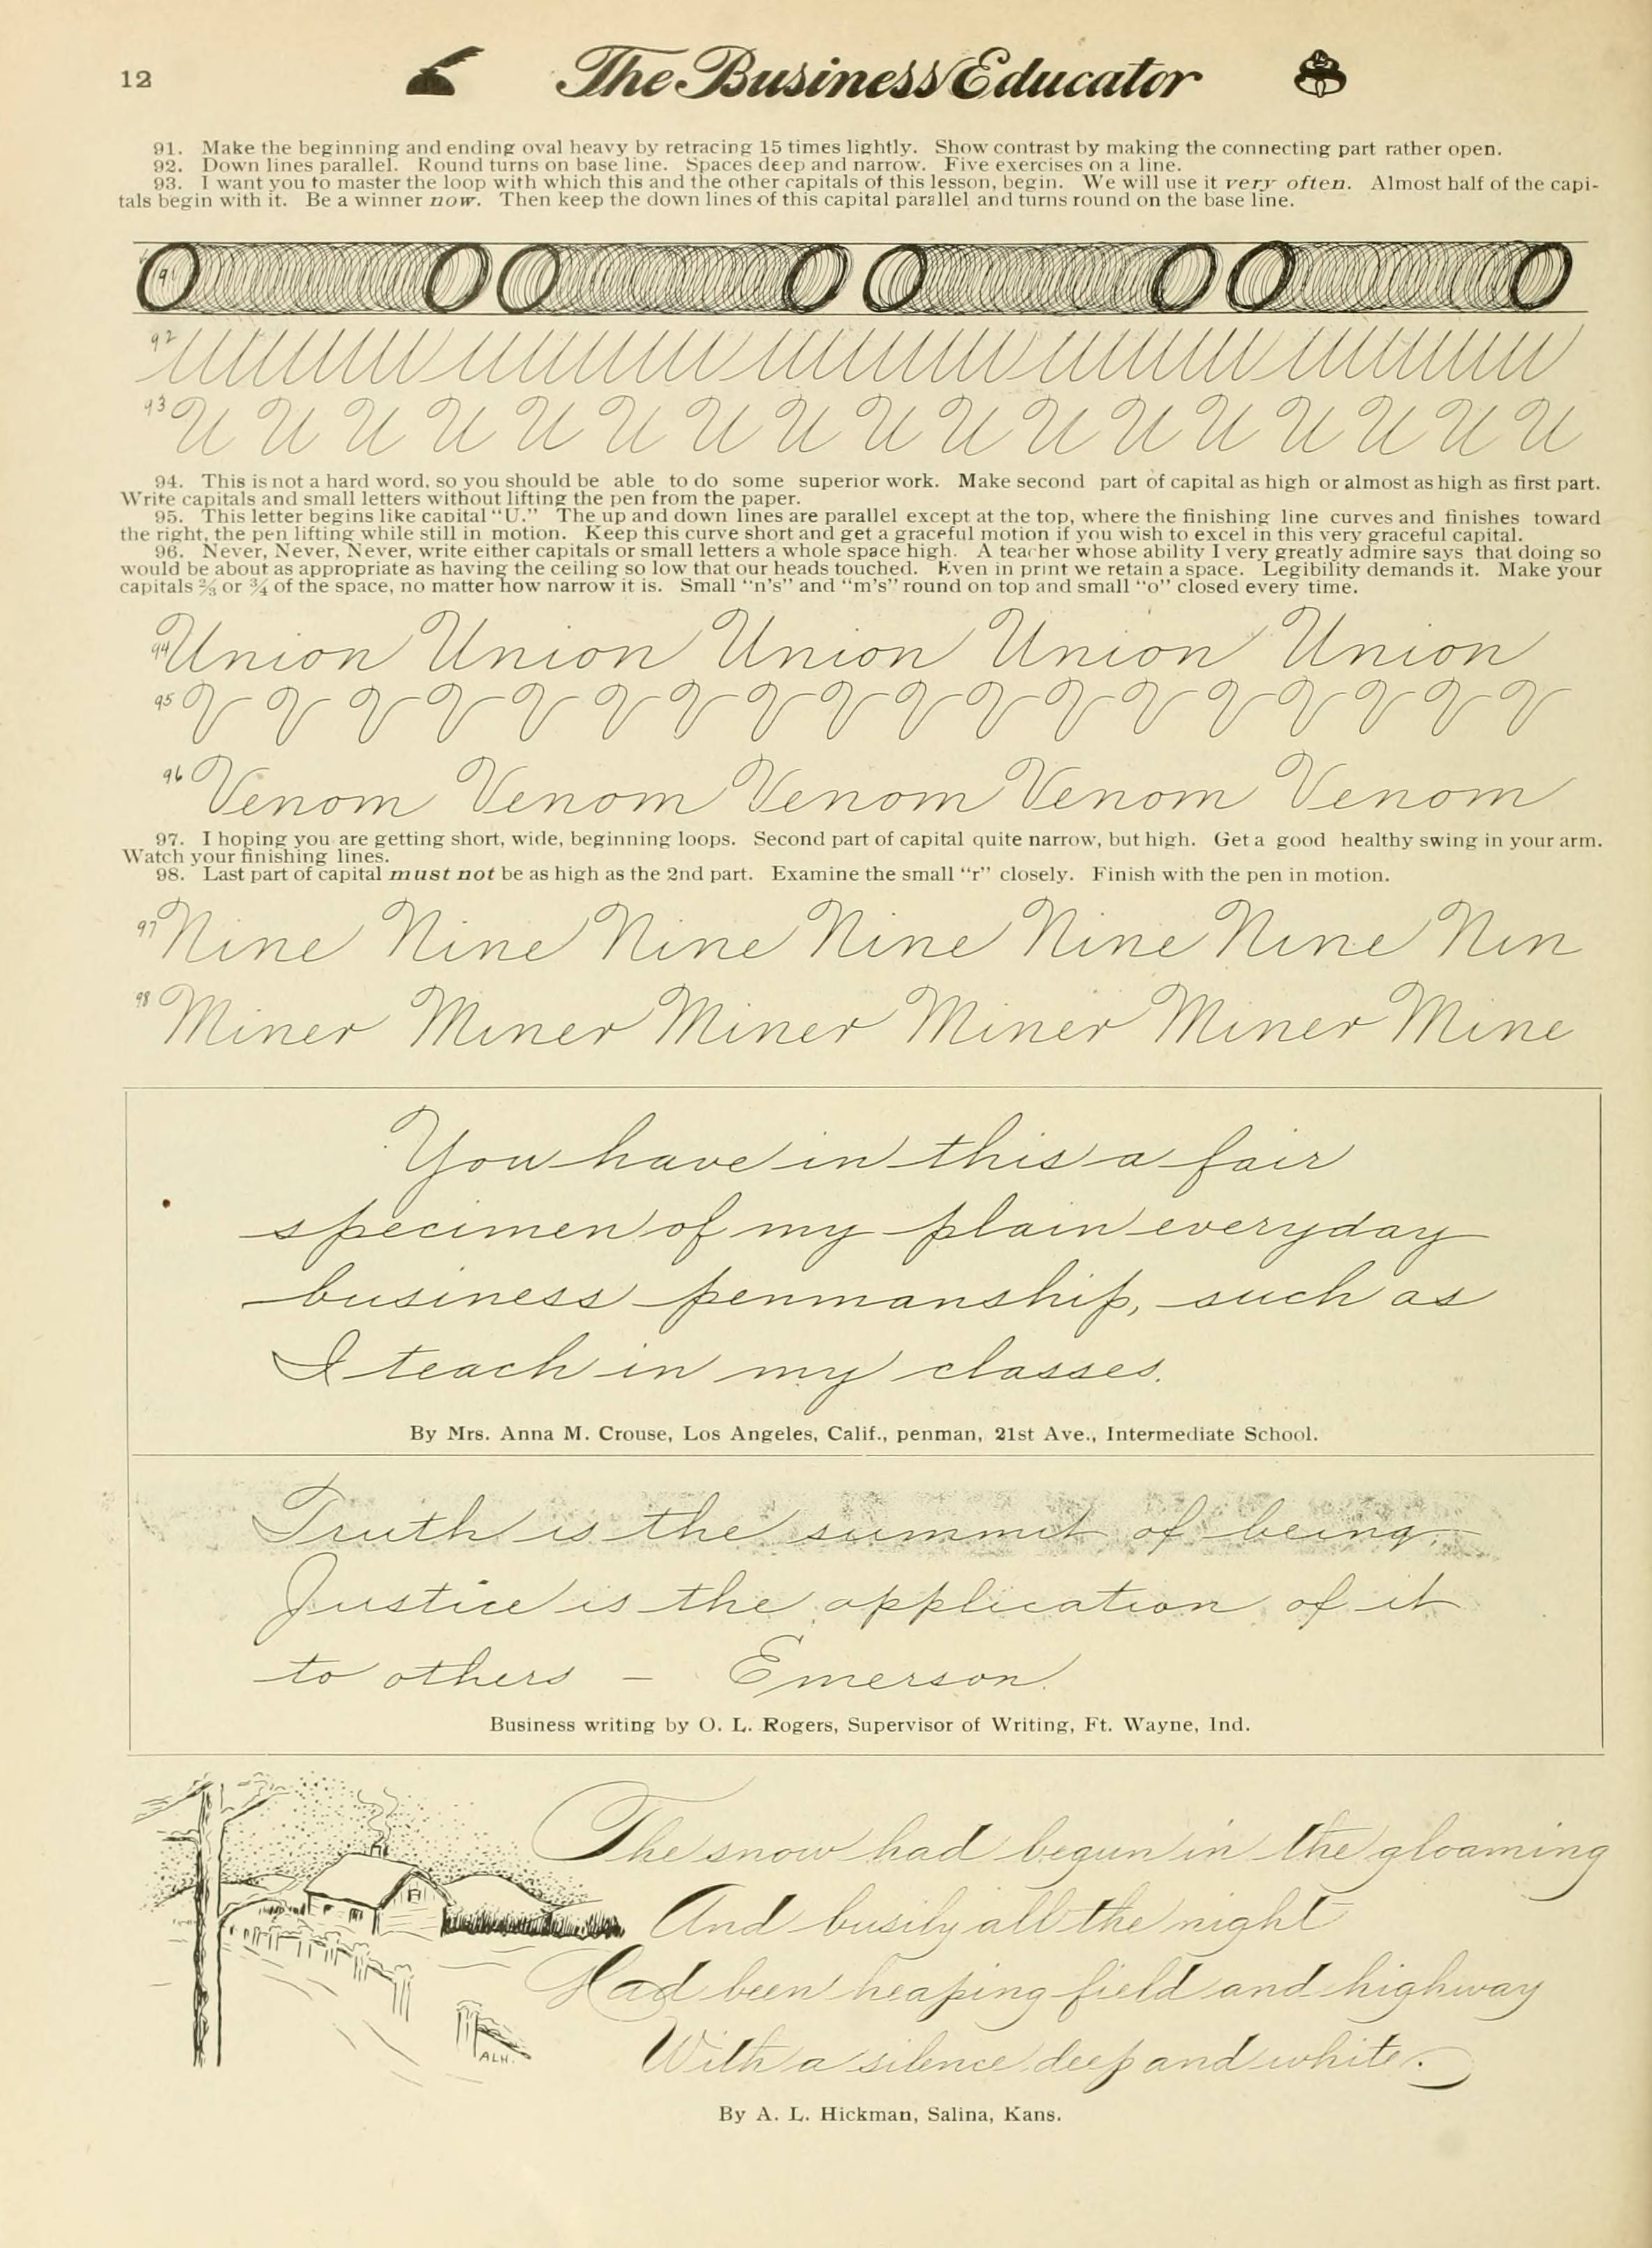 12
The Business Educator
91. Make the beginning and ending oval heavy by retracing 15 times lightly. Show contrast by making the connecting part rather open.
92. Down lines parallel. Round turns on base line. Spaces deep and narrow. Five exercises on a line.
93. I want you to master the loop with which this and the other capitals of this lesson, begin. We will use it very often. Almost half of the capi-
tals begin with it. Be a winner now. Then keep the down lines of this capital parallel and turns round on the base line.
91
92
93 U U U U U U U U U U U U U U U U U
94. This is not a hard word, so you should be able to do some superior work. Make second part of capital as high or almost as high as first part.
Write capitals and small letters without lifting the pen from the paper.
95. This letter begins like capital "U." The up and down lines are parallel except at the top, where the finishing line curves and finishes toward
the right, the pen lifting while still in motion. Keep this curve short and get a graceful motion if you wish to excel in this very graceful capital.
96. Never, Never, Never, write either capitals or small letters a whole space high. A teacher whose ability I very greatly admire says that doing so
would be about as appropriate as having the ceiling so low that our heads touched. Even in print we retain a space. Legibility demands it. Make your
capitals ⅔ or ¾ of the space, no matter how narrow it is. Small "n's" and "m's" round on top and small "o" closed every time.
94 Union Union Union Union Union
95 V V V V V V V V V V V V V V V V V
96 Venom Venom Venom Venom Venom
97. I hoping you are getting short, wide, beginning loops. Second part of capital quite narrow, but high. Get a good healthy swing in your arm.
Watch your finishing lines.
98. Last part of capital must not be as high as the 2nd part. Examine the small "r" closely. Finish with the pen in motion.
97 Nine Nine Nine Nine Nine Nine Nin
98 Miner Miner Miner Miner Miner Mine
You have in this a fair
specimen of my plain everyday
business penmanship, such as
I teach in my classes.
By Mrs. Anna M. Crouse, Los Angeles, Calif., penman, 21st Ave., Intermediate School.
Truth is the summit of being,
Justice is the application of it
to others — Emerson.
Business writing by O. L. Rogers, Supervisor of Writing, Ft. Wayne, Ind.
The snow had begun in the gloaming
And busily all the night
Had been heaping field and highway
With a silence deep and white.
ALH.
By A. L. Hickman, Salina, Kans.